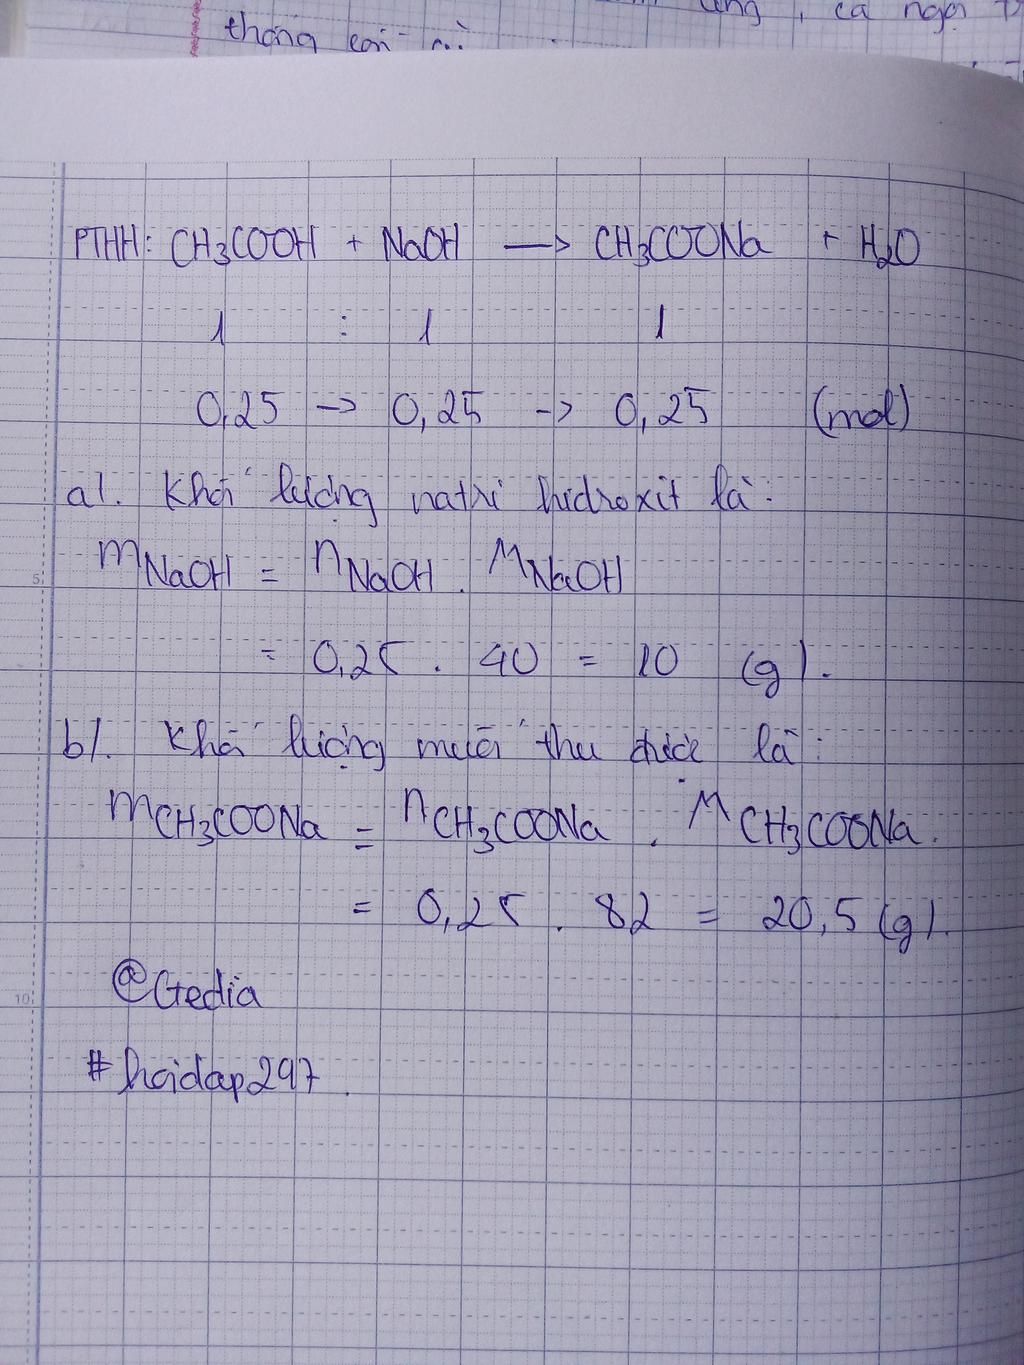 ca ngợi
thống
PTHH: CH3COOH + NaOH —> CH3COONa + H2O
1 : 1 1
0,25 -> 0,25 -> 0,25 (mol)
a/. Khối lượng natri hidroxit là:
mNaOH = nNaOH . MNaOH
= 0,25 . 40 = 10 (g).
b/. Khối lượng muối thu được là:
mCH3COONa = nCH3COONa . MCH3COONa.
= 0,25 . 82 = 20,5 (g).
@Gedia
#hoidap297.
5
10